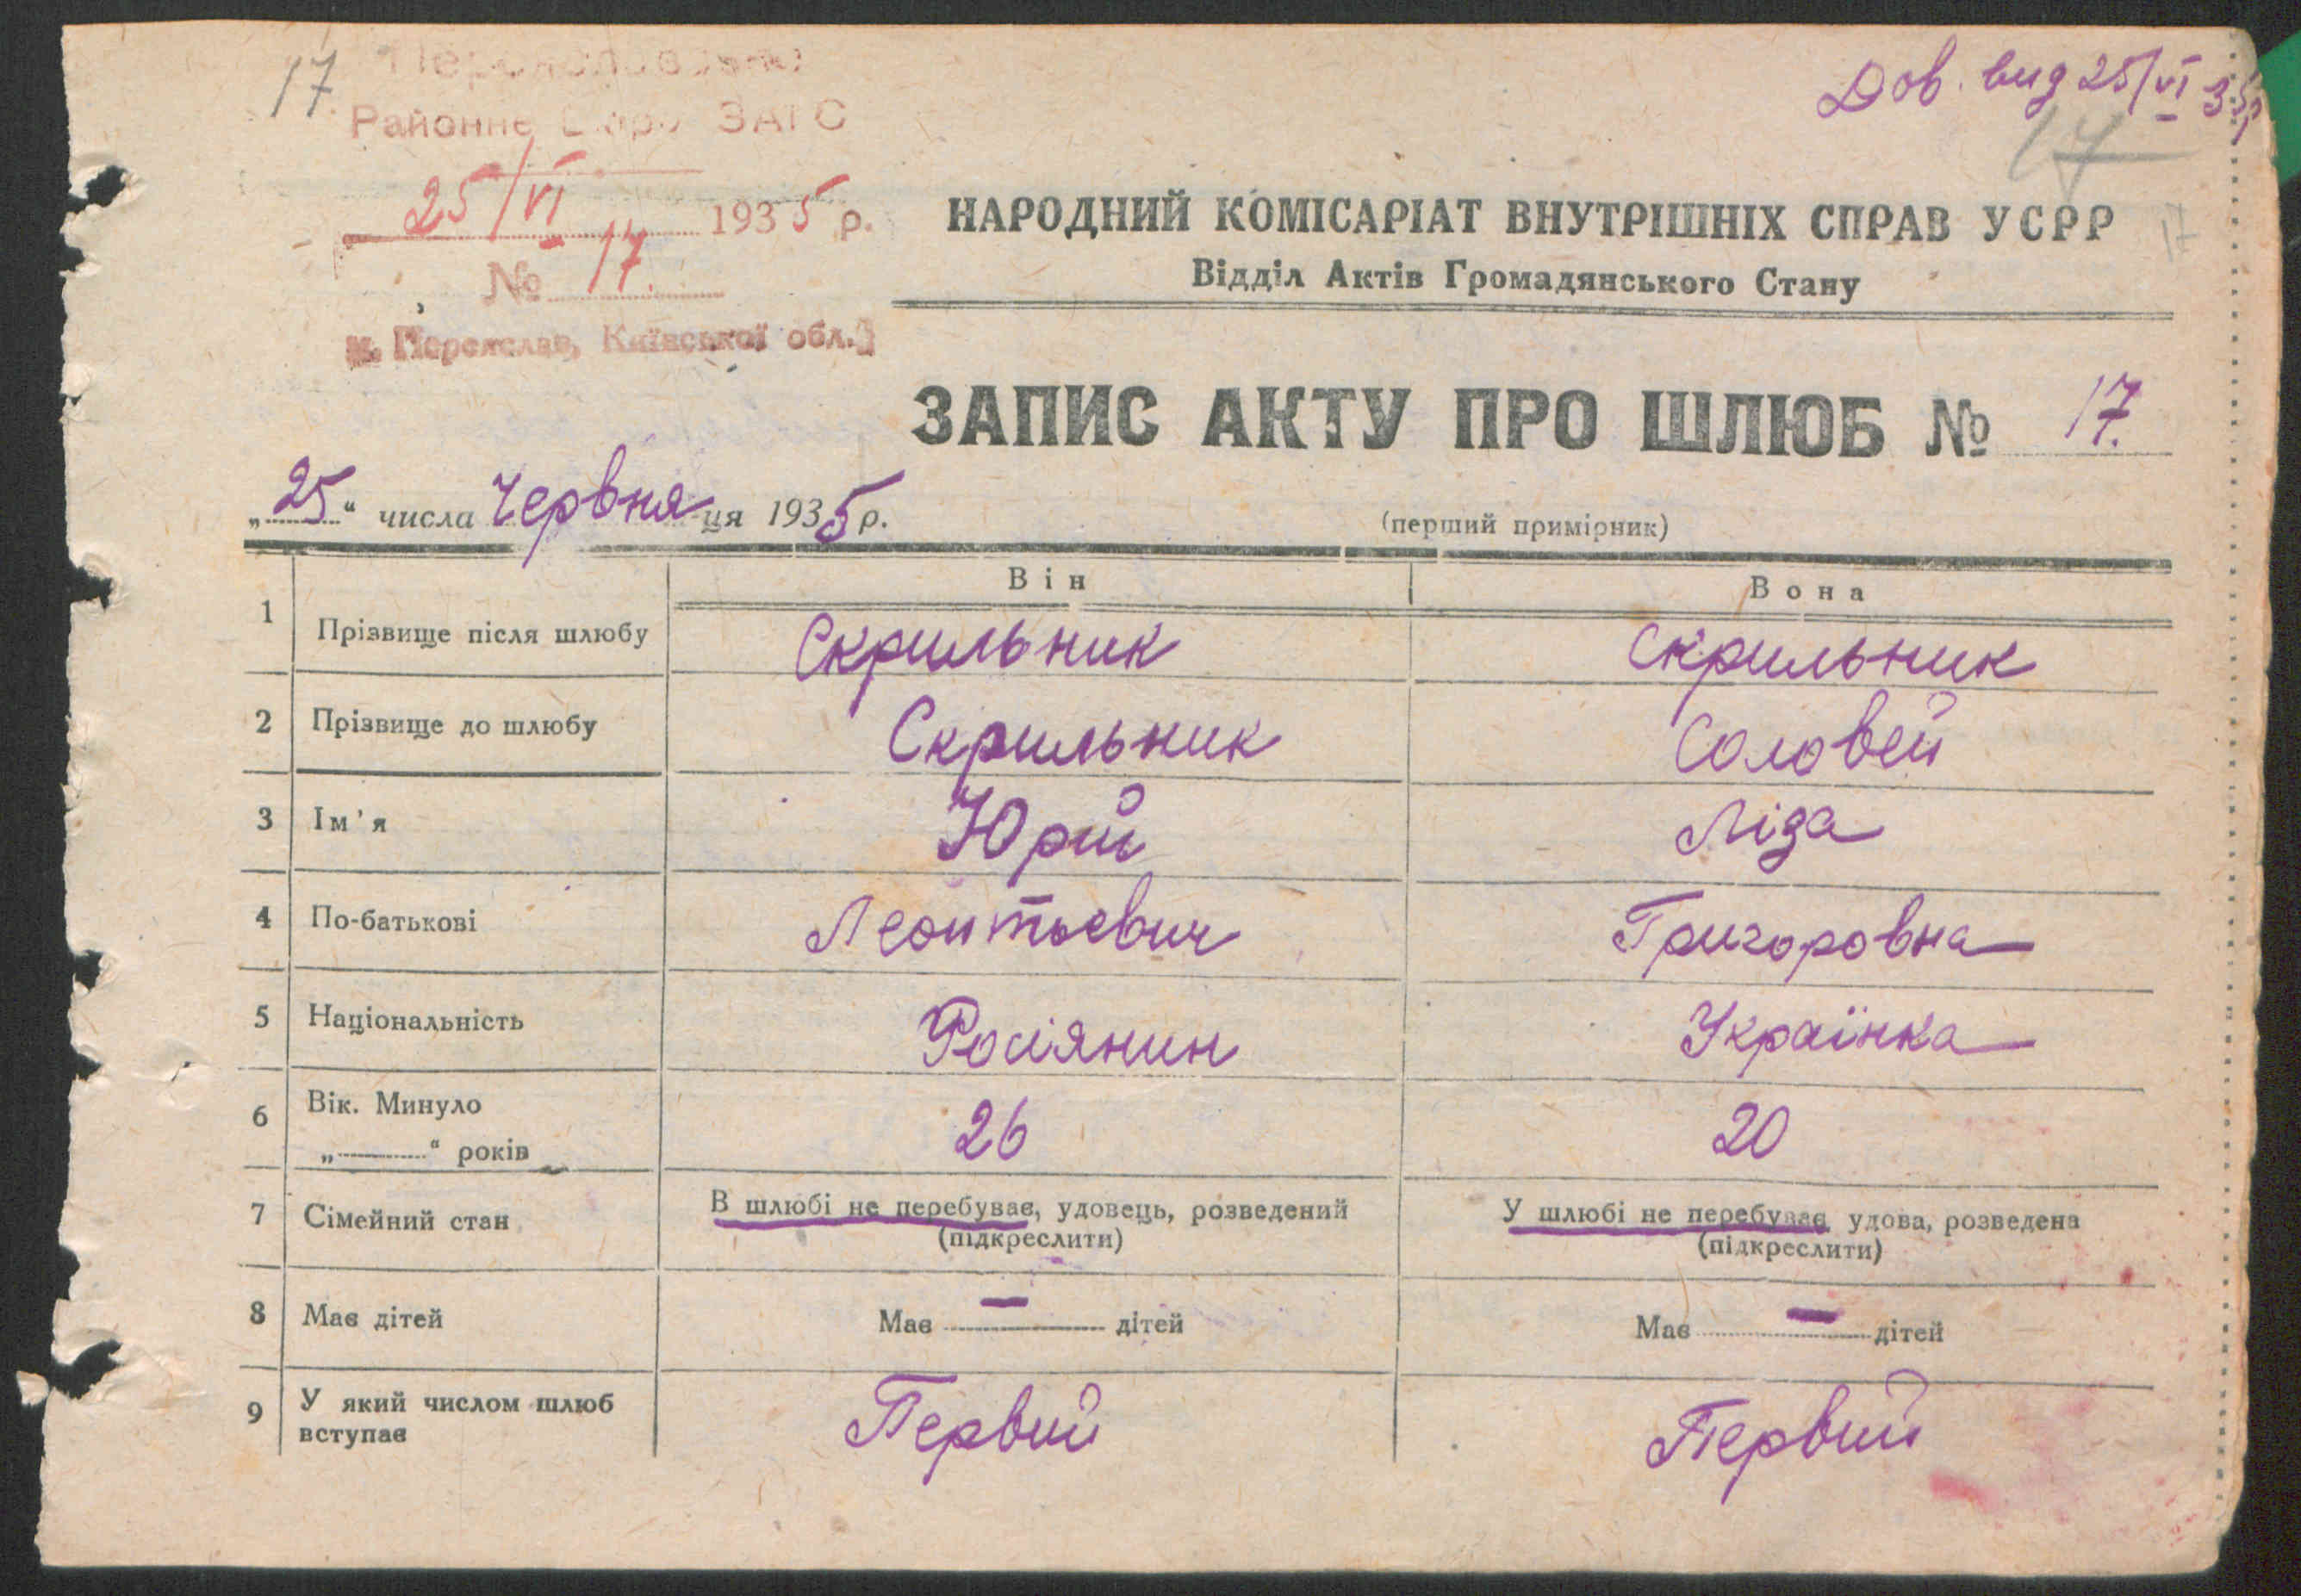 17
Районне Бюро ЗАГС
25/VI 1935 р.
№ 17.
м. Переяслав, Київської обл.
Дов. вид 25/VI 35р
17
НАРОДНИЙ КОМІСАРІАТ ВНУТРІШНІХ СПРАВ УСРР
17
Відділ Актів Громадянського Стану
ЗАПИС АКТУ ПРО ШЛЮБ № 17.
„25“ числа Червня ця 1935 р.
(перший примірник)
Він Вона
1 Прізвище після шлюбу Скрильник Скрильник
2 Прізвище до шлюбу Скрильник Соловей
3 Ім'я Юрій Ліза
4 По-батькові Леонтьевич Григоровна
5 Національність Росіянин Українка
6 Вік. Минуло
„ “ років 26 20
7 Сімейний стан В шлюбі не перебуває, удовець, розведений У шлюбі не перебуває удова, розведена
(підкреслити) (підкреслити)
8 Має дітей Має — дітей Має — дітей
9 У який числом шлюб
вступає Первий Первий